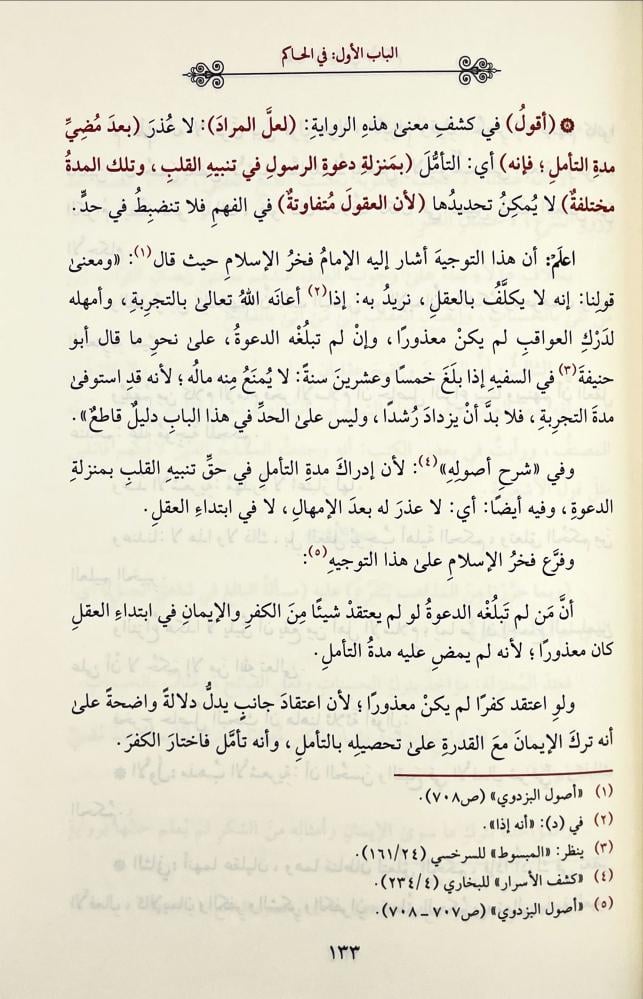 الباب الأول: في الحاكم
۞ (أقولُ) في كشفِ معنىٰ هذهِ الروايةِ: (لعلَّ المرادَ): لا عُذرَ (بعدَ مُضِيِّ
مدةِ التأملِ؛ فإنه) أي: التأمُّلَ (بمَنزلةِ دعوةِ الرسولِ في تنبيهِ القلبِ، وتلك المدةُ
مختلفةٌ) لا يُمكِنُ تحديدُها (لأن العقولَ مُتفاوتةٌ) في الفهمِ فلا تنضبِطُ في حدٍّ.
اعلَمْ: أن هذا التوجيهَ أشار إليه الإمامُ فخرُ الإسلامِ حيث قال(١): «ومعنىٰ
قولِنا: إنه لا يكلَّفُ بالعقلِ، نريدُ به: إذا(٢) أعانَه اللهُ تعالىٰ بالتجرِبةِ، وأمهله
لدَرْكِ العواقبِ لم يكنْ معذورًا، وإنْ لم تبلُغْه الدعوةُ، علىٰ نحوِ ما قال أبو
حنيفةَ(٣) في السفيهِ إذا بلَغَ خمسًا وعشرينَ سنةً: لا يُمنَعُ مِنه مالُه؛ لأنه قدِ استوفىٰ
مدةَ التجرِبةِ، فلا بدَّ أنْ يزدادَ رُشدًا، وليس علىٰ الحدِّ في هذا البابِ دليلٌ قاطعٌ».
وفي «شرحِ أصولِهِ»(٤): لأن إدراكَ مدةِ التأملِ في حقِّ تنبيهِ القلبِ بمنزلةِ
الدعوةِ، وفيه أيضًا: أي: لا عذرَ له بعدَ الإمهالِ، لا في ابتداءِ العقلِ.
وفرَّع فخرُ الإسلامِ علىٰ هذا التوجيهِ(٥):
أنَّ مَن لم تَبلُغْه الدعوةُ لو لم يعتقدْ شيئًا مِنَ الكفرِ والإيمانِ في ابتداءِ العقلِ
كان معذورًا؛ لأنه لم يمضِ عليه مدةُ التأملِ.
ولوِ اعتقد كفرًا لم يكنْ معذورًا؛ لأن اعتقادَ جانبٍ يدلُّ دلالةً واضحةً علىٰ
أنه تركَ الإيمانَ معَ القدرةِ علىٰ تحصيلِه بالتأملِ، وأنه تأمَّل فاختارَ الكفرَ.
(١) «أصول البزدوي» (ص٧٠٨).
(٢) في (د): «أنه إذا».
(٣) ينظر: «المبسوط» للسرخسي (١٦١/٢٤).
(٤) «كشف الأسرار» للبخاري (٢٣٤/٤).
(٥) «أصول البزدوي» (ص٧٠٧ - ٧٠٨).
١٣٣